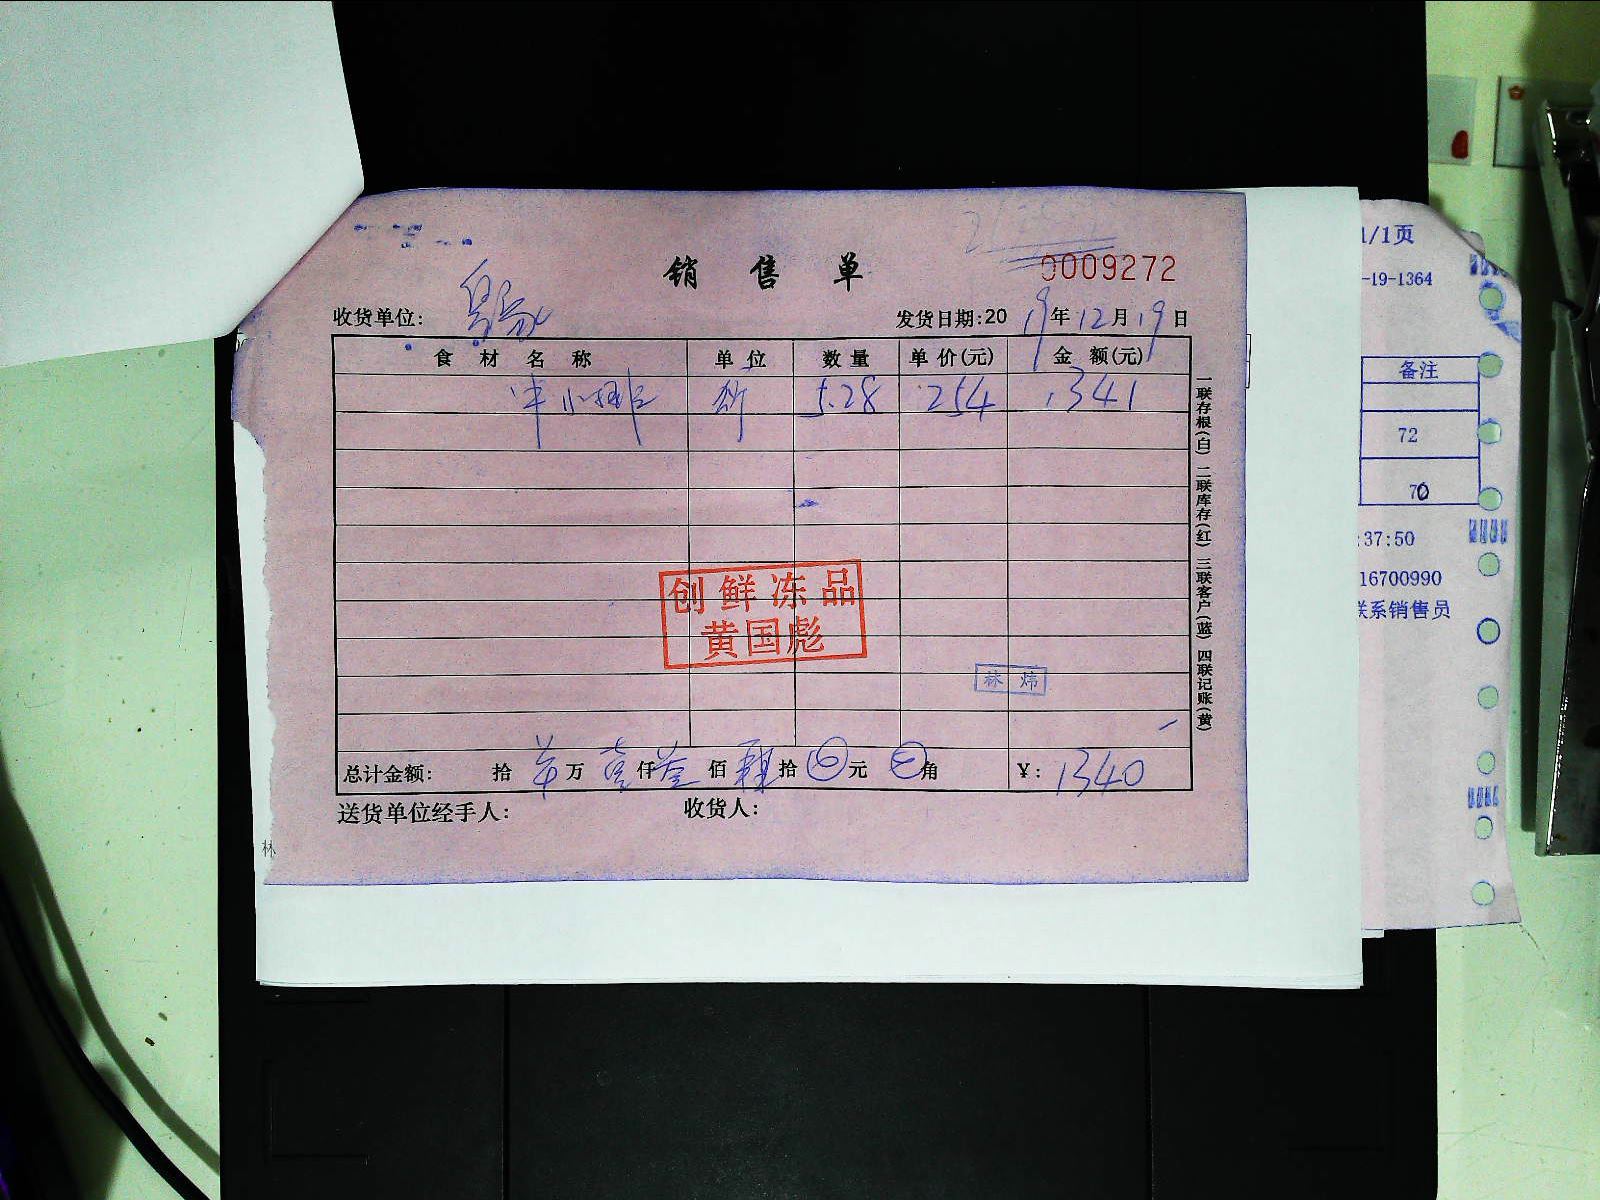 销售单
0009272
收货单位: 发货日期:2019年12月19日
食材名称 单位 数量 单价(元) 金额(元)
牛小排 斤 5.28 254 1341
创鲜冻品
黄国彪
林炜
总计金额: 拾 万 壹仟叁佰 肆拾 元 角 ¥: 1340
送货单位经手人: 收货人:
一联存根(白) 二联库存(红) 三联客户(蓝) 四联记账(黄)
林
1/1页
-19-1364
备注
72
70
:37:50
16700990
联系销售员